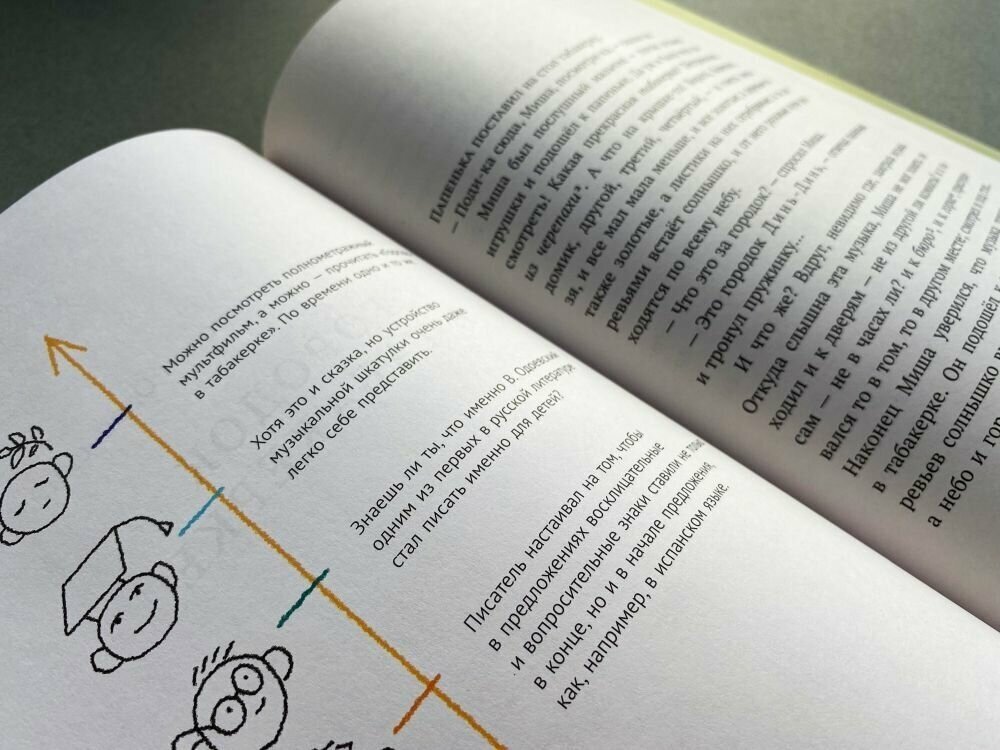 Можно посмотреть полнометражный
мультфильм, а можно — прочитать
в табакерке». По времени одно и то же
Хотя это и сказка, но устройство
музыкальной шкатулки очень даже
легко себе представить.
Знаешь ли ты, что именно В. Одоевский
одним из первых в русской литературе
стал писать именно для детей?
Писатель настаивал на том, чтобы
в предложениях восклицательные
и вопросительные знаки ставили не только
в конце, но и в начале предложения,
как, например, в испанском языке.
ПАПЕНЬКА ПОСТАВИЛ НА СТОЛ ТАБАКЕРКУ.
— Поди-ка сюда, Миша, посмотри-ка,
Миша был послушный
игрушки и подошёл к папеньке. Да
смотреть! Какая прекрасная
из черепахи². А что на крышке-то!
домик, другой, третий, четвёртый, —
зя, и все мал мала меньше, и все золотые;
также золотые, а листики на них серебряные;
ревьями встаёт солнышко, и от него розовые лучи
ходятся по всему небу.
— Что это за городок? — спросил Миша.
— Это городок Динь-Динь, — отвечал папенька
и тронул пружинку...
И что же? Вдруг, невидимо где, заиграла
Откуда слышна эта музыка, Миша не мог понять: он
ходил и к дверям — не из другой ли комнаты? и к
сам — не в часах ли? и к бюро³, и к горке
вался то в том, то в другом месте; смотрел и под стол...
Наконец Миша уверился, что музыка
в табакерке. Он подошёл
ревьев солнышко
а небо и гор